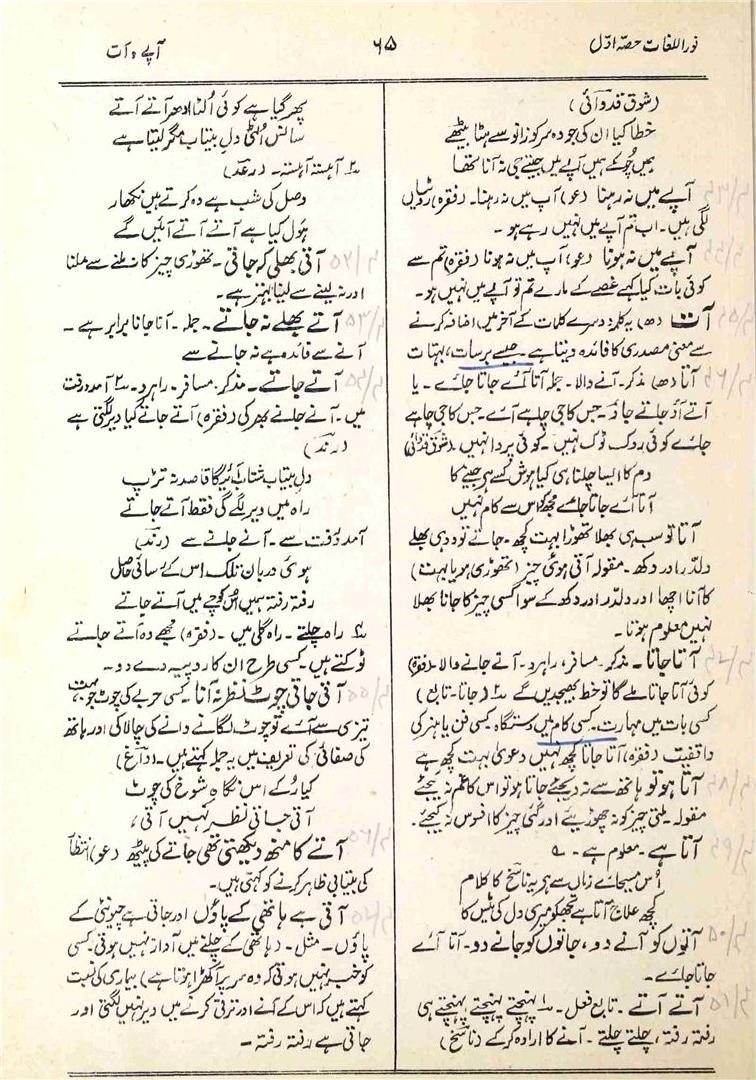 نور اللغات حصہ اوّل
۶۵
آپے ، آت
(شوق قدوائی)
خطا کیا ان کی جو وہ سر کو زانو سے ہٹا بیٹھے
ہمیں چُوکے ہیں آپے میں جیتے جی نہ آنا تھا
آپے میں نہ رہنا (عو) آپ میں نہ رہنا۔ (فقرہ) روٹیاں
لگی ہیں۔ اب تم آپے میں نہیں رہے ہو۔
آپے میں نہ ہونا (عو) آپ میں نہ ہونا (فقرہ) تم سے
کوئی بات کیا کہے غصے کے مارے تم تو آپے میں نہیں ہو۔
آت (ھ) یہ کلمہ دوسرے کلمات کے آخر میں اضافہ کرنے
سے معنی مصدری کا فائدہ دیتا ہے۔ جیسے برسات، بہتات
آتا (ھ) مذکر۔ آنے والا۔ جملہ آتا آئے جاتا جائے۔ یا
آتے آؤ جاتے جاؤ۔ جس کا جی چاہے آئے۔ جس کا جی چاہے
جائے کوئی روک ٹوک نہیں۔ کوئی پروا نہیں۔ (شوق قدوائی)
دم کا ایسا چلنا ہی کیا ہوش کسے ہر جینے کا
آتا آئے جاتا جائے مجھ کو اس سے کام نہیں
آتا تو سب ہی بھلا تھوڑا بہت کچھ۔ جاتے تو دو ہی بھلے
دلدّر اور دکھ۔ مقولہ آتی ہوئی چیز (تھوڑی ہو یا بہت)
کا آنا اچھا اور دلدّر اور دکھ کے سوا کسی چیز کا جانا بھلا
نہیں معلوم ہوتا۔
آتا جاتا۔ مذکر۔ مسافر، راہرو۔ آنے جانے والا۔ (فقرہ)
کوئی آتا جاتا ملے گا تو خط بھیجدیں گے ۲ (جانا۔ تابع)
کسی بات میں مہارت۔ کسی کام میں دستگاہ۔ کسی فن یا ہنر کی
واقفیت (فقرہ) آتا جاتا کچھ نہیں دعویٰ بہت کچھ ہے
آتا ہو تو ہاتھ سے نہ دیجئے جاتا ہو تو اس کا غم نہ کیجئے
مقولہ۔ ملتی چیز کو نہ چھوڑیئے اور گئی چیز کا افسوس نہ کیجئے۔
آتا ہے۔ معلوم ہے۔
اُس مسیحائے زماں سے ہے یہ ناسخ کا کلام
کچھ علاج آتا ہے تجھ کو میری دل کی ٹیس کا
آتوں کو آنے دو، جاتوں کو جانے دو۔ آتا آئے
جاتا جائے۔
آتے آتے۔ تابع فعل۔ ۱ پہنچتے پہنچتے، پہنچتے ہی
رفتہ رفتہ، چلتے چلتے۔ آنے کا ارادہ کر کے (ناسخ)
پھر گیا ہے کوئی اُلٹا ادھر آتے آتے
سانس اُلٹی دلِ بیتاب مگر لیتا ہے
۲ آہستہ آہستہ۔ (رعد)
وصل کی شب ہے وہ کرتے ہیں نکھار
ہول کیا ہے آتے آتے آئیں گے
آتی بھلی کہ جاتی۔ تھوڑی چیز کا نہ ملنے سے ملنا
اور نہ لینے سے لینا بہتر ہے۔
آتے بھلے نہ جاتے۔ جملہ۔ آنا جانا برابر ہے۔
آنے سے فائدہ ہے نہ جانے سے
آتے جاتے۔ مذکر۔ مسافر۔ راہرو۔ ۲ آمد و رفت
میں۔ آنے جانے بھر کی (فقرہ) آتے جاتے کیا دیر لگتی ہے
(رند)
دلِ بیتاب شتاب آئیگا قاصد نہ تڑپ
راہ میں دیر لگے گی فقط آتے جاتے
آمد و رفت سے۔ آنے جانے سے (رند)
ہوئی دربان تلک اس کے رسائی حاصل
رفتہ رفتہ ہمیں اس کوچے میں آتے جاتے
۴ راہ چلتے۔ راہ گلی میں۔ (فقرہ) مجھے وہ آتے جاتے
ٹوکتے ہیں۔ کسی طرح ان کا روپیہ دے دو۔
آتی جاتی چوٹ نظر نہ آنا۔ کسی حربے کی چوٹ جو بہت
تیزی سے آئے تو چوٹ لگانے والے کی چالاکی اور ہاتھ
کی صفائی کی تعریف میں یہ جملہ کہتے ہیں۔ (داغ)
کیا رُکے اس نگاہِ شوخ کی چوٹ
آتی جاتی نظر نہیں آتی،
آتے کا منھ دیکھتی تھی جاتے کی پیٹھ (عو) انتظار
کی بیتابی ظاہر کرنے کو کہتی ہیں۔
آتی ہے ہاتھی کے پاؤں اور جاتی ہے چیونٹی کے
پاؤں۔ مثل۔ (ہاتھی کے چلنے میں آواز نہیں ہوتی۔ کسی
کو خبر نہیں ہوتی کہ وہ سر پر آ کھڑا ہوتا ہے) بیماری کی نسبت
کہتے ہیں کہ اس کے آنے اور ترقی کرنے میں دیر نہیں لگتی اور
جاتی ہے رفتہ رفتہ۔